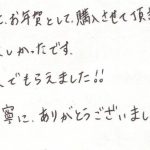 、お年賀として、購入させて頂
しかったです。
でもらえました!!
寧に、ありがとうございまし